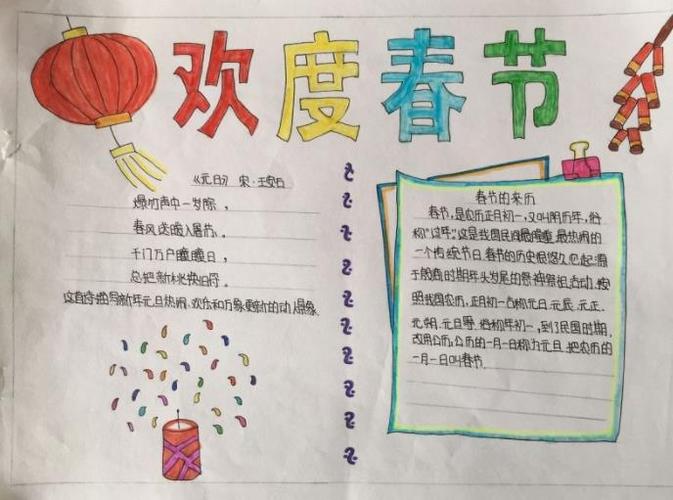 欢度春节
《元日》 宋·王安石
爆竹声中一岁除，
春风送暖入屠苏。
千门万户曈曈日，
总把新桃换旧符。
这首诗描写新年元旦热闹、欢乐和万象更新的动人景象
春节的来历
春节，是农历正月初一，又叫阴历年，俗
称“过年”这是我国民间最隆重、最热闹的
一个传统节日.春节的历史很悠久,它起源
于殷商时期年头岁尾的祭神祭祖活动.按
照我国农历，正月初一古称元日、元辰、元正、
元朔、元旦等，俗称年初一，到了民国时期，
改用公历，公历的一月一日称为元旦，把农历的
一月一日叫春节.